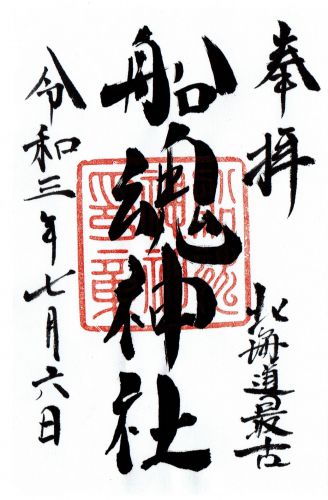 奉拝
北海道最古
船魂神社
令和三年七月六日